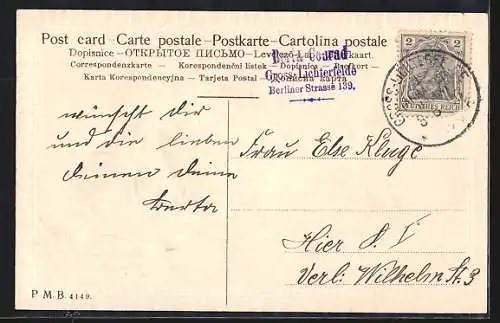 Post card - Carte postale - Postkarte - Cartolina postale
Dopisnice - ОТКРЫТОЕ ПИСЬМО - Levelező-Lap
Correspondenzkarte - Korespondenční listek - Dopisnica - Brefkort -
Karta Korespondencyjna - Tarjeta Postal - карта
Berta Conrad
Gross-Lichterfelde
Berliner Strasse 139.
2 2
DEUTSCHES REICH
GROSS-LICHTERFELDE
wünscht dir
und die lieben
deinen deine
Berta
Frau Else Kluge
Hier
Verl: Wilhelm St. 3
P M. B. 4149.